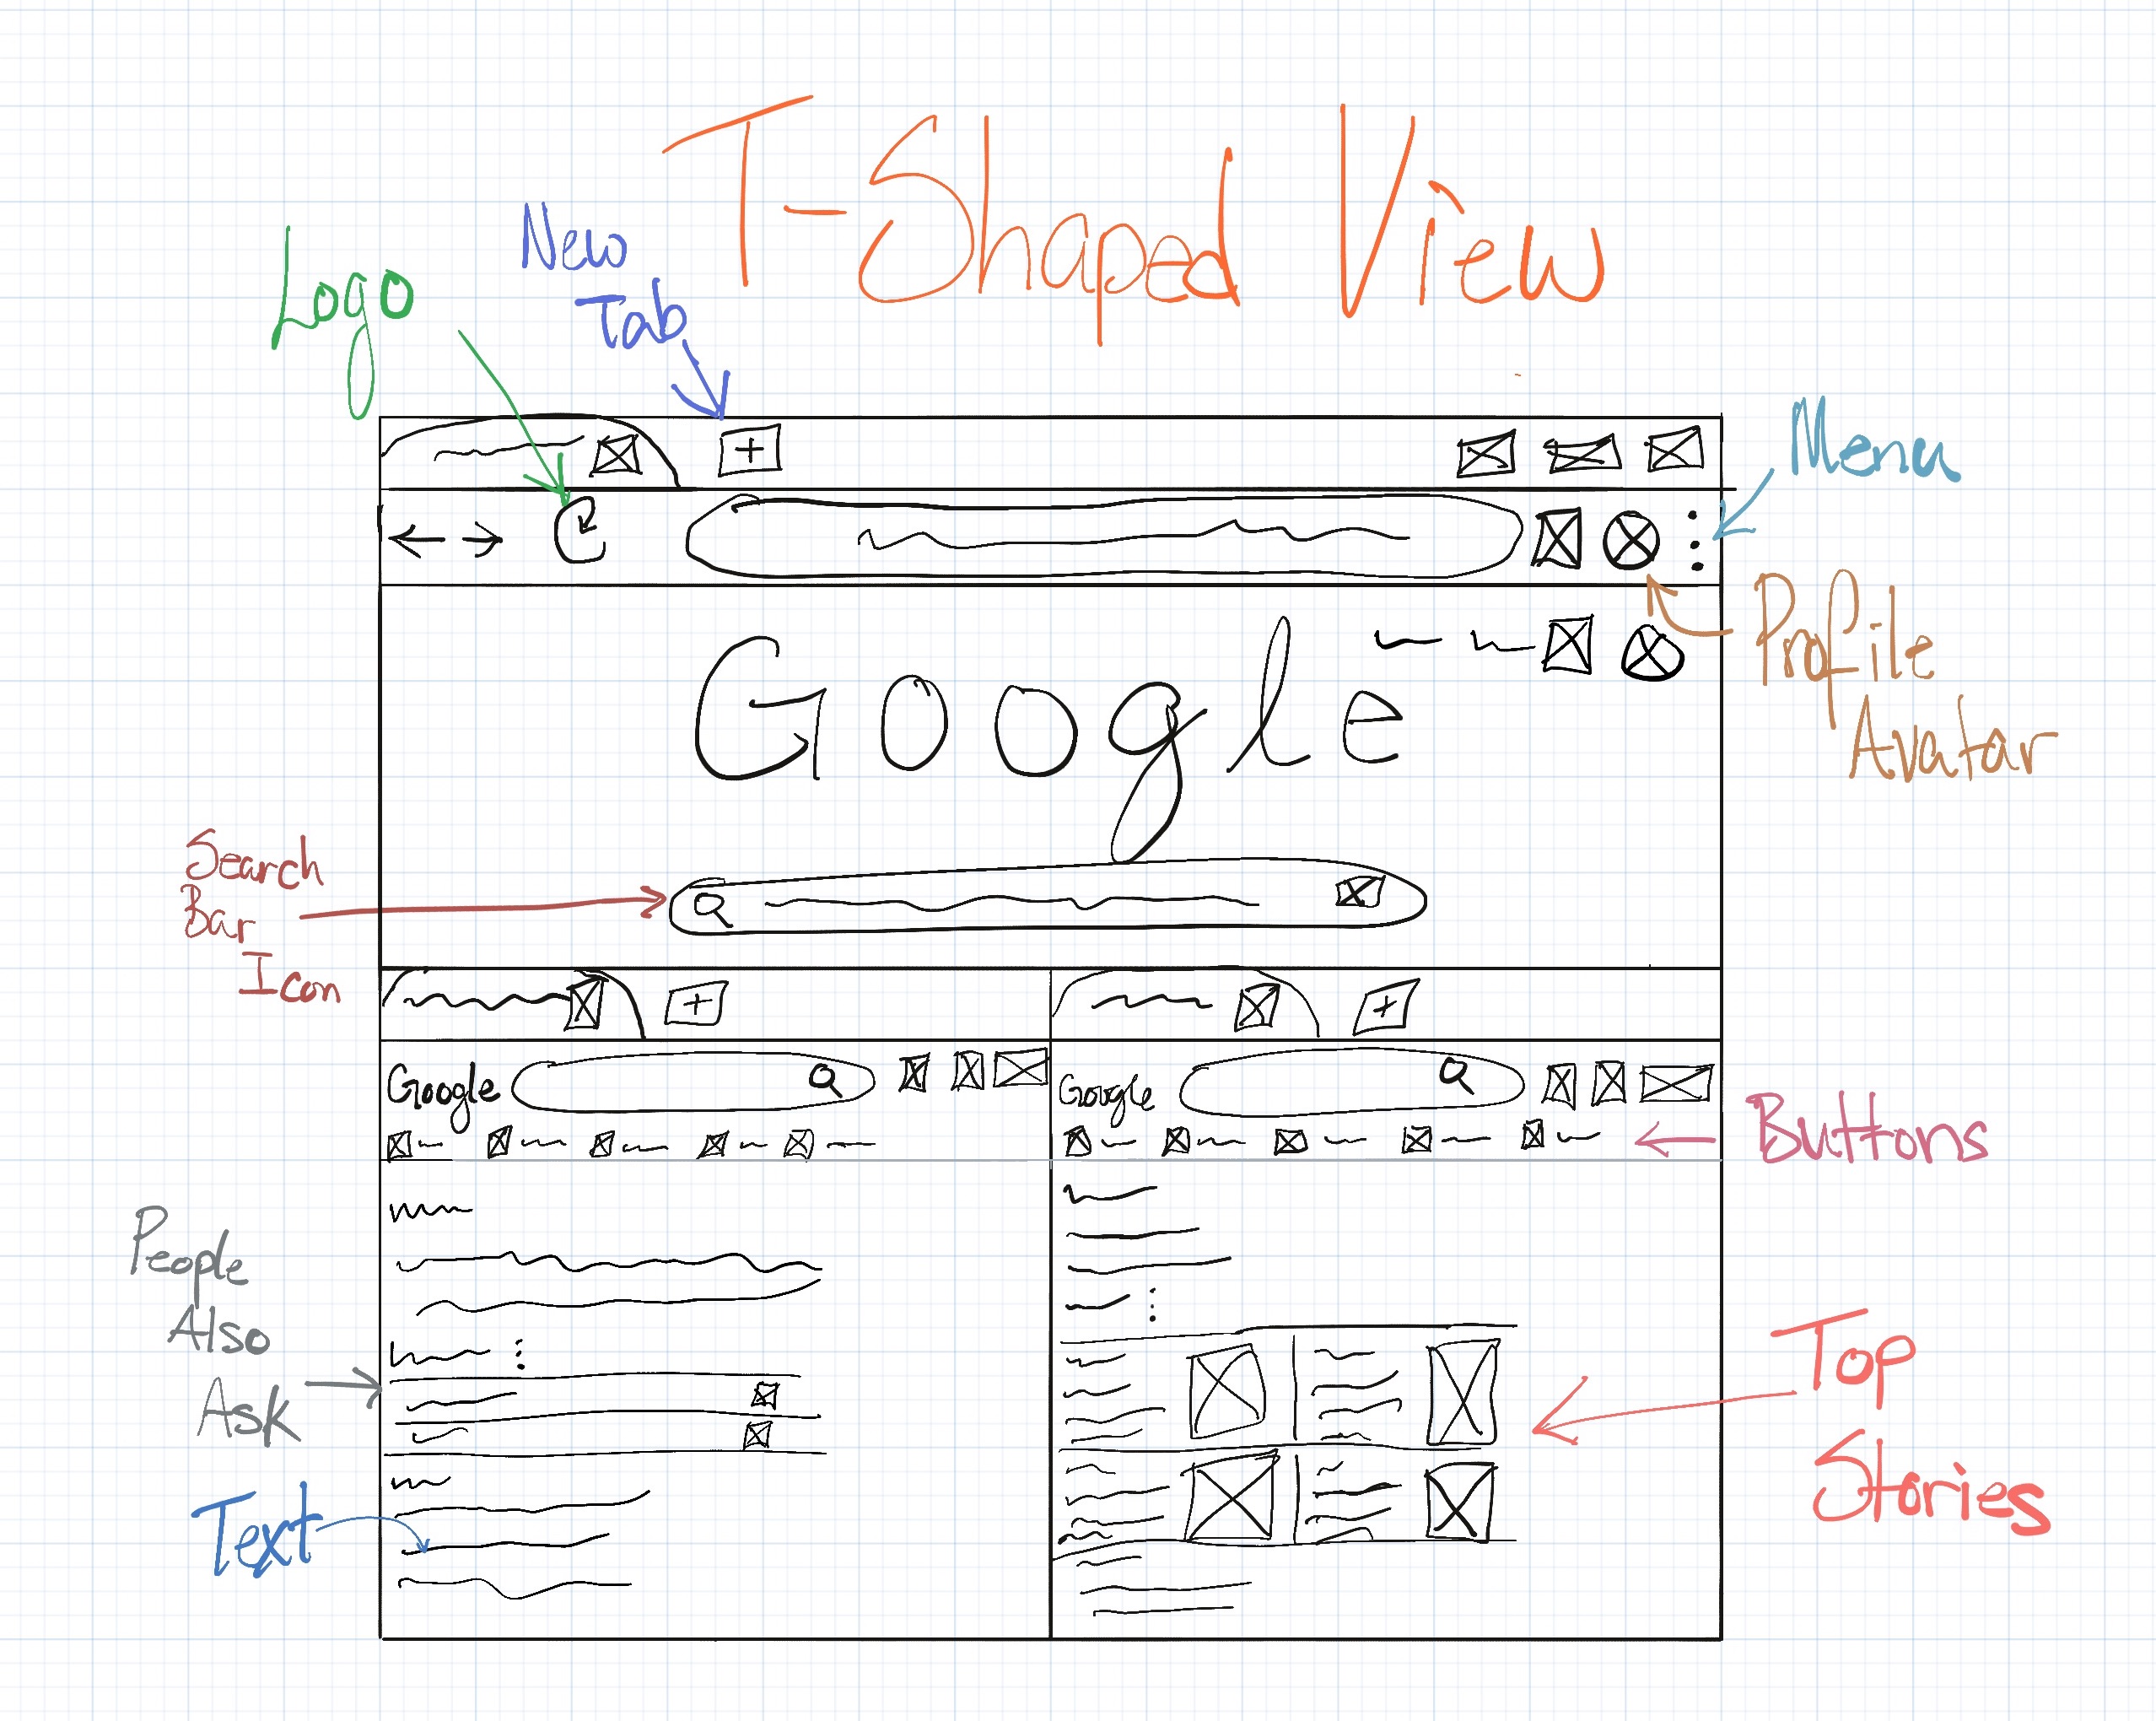 T-Shaped View
New
Tab
Logo
Menu
Profile
Avatar
Google
Search
Bar
Icon
Google
Google
Buttons
People
Also
Ask
Top
Stories
Text